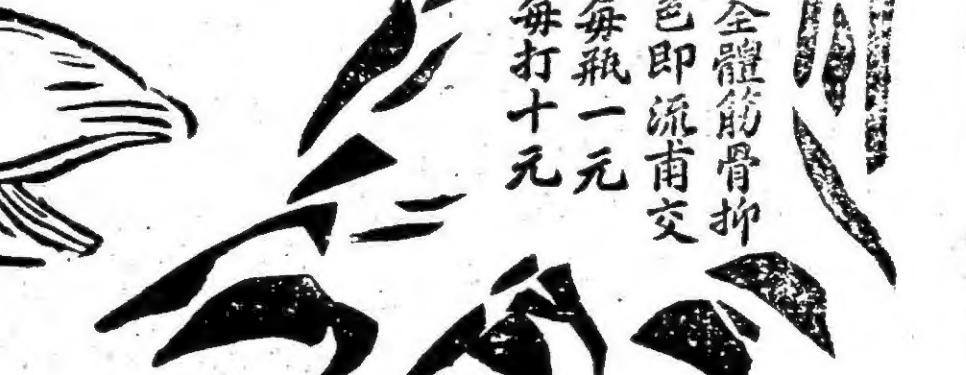 全體筋骨抑
色即流甫交
每瓶一元
每打十元